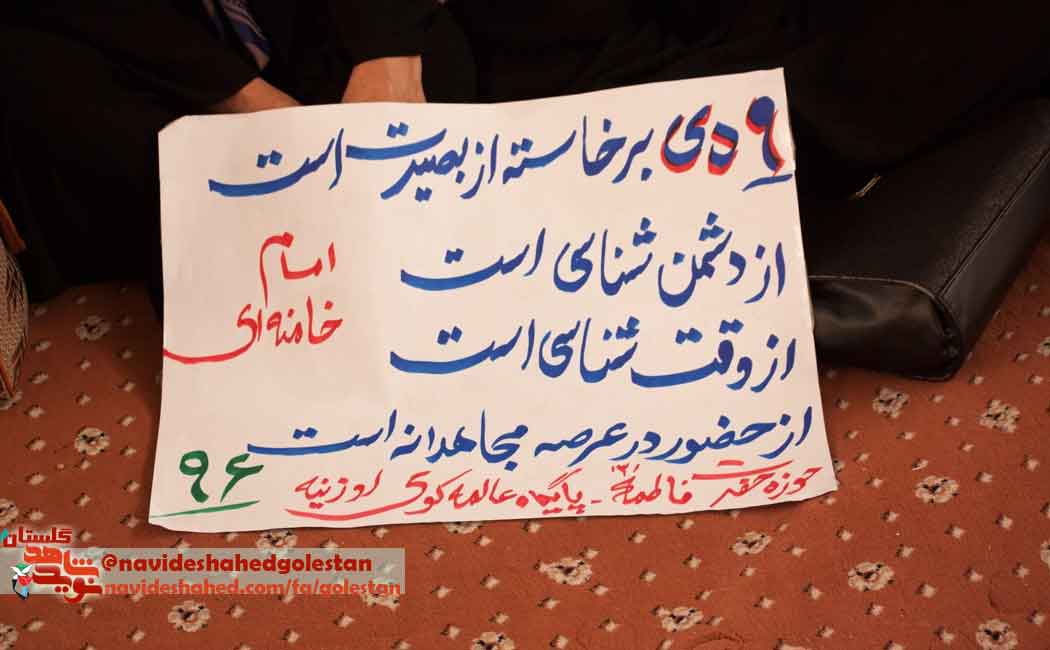 ۹ دی برخاسته از بصیرت است
از دشمن شناسی است
از وقت شناسی است
از حضور در عرصه مجاهدانه است
امام
خامنه ای
حوزه حضرت فاطمه - پایگاه عالمه کوی
۹۶
گلستان
نوید شاهد
@navideshahedgolestan
navideshahed.com/fa/golestan